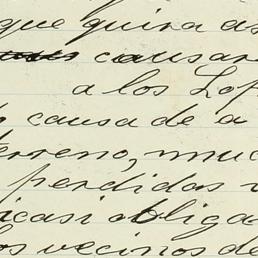 que quira as
causar
a los Lop
causa de a
erreno, muc
perdidas
icasi obliga
os vecinos de